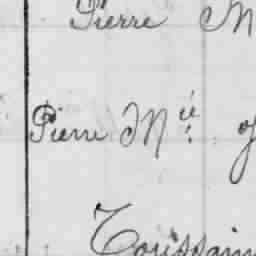 Pierre M
Pierre M.ie
Toussain